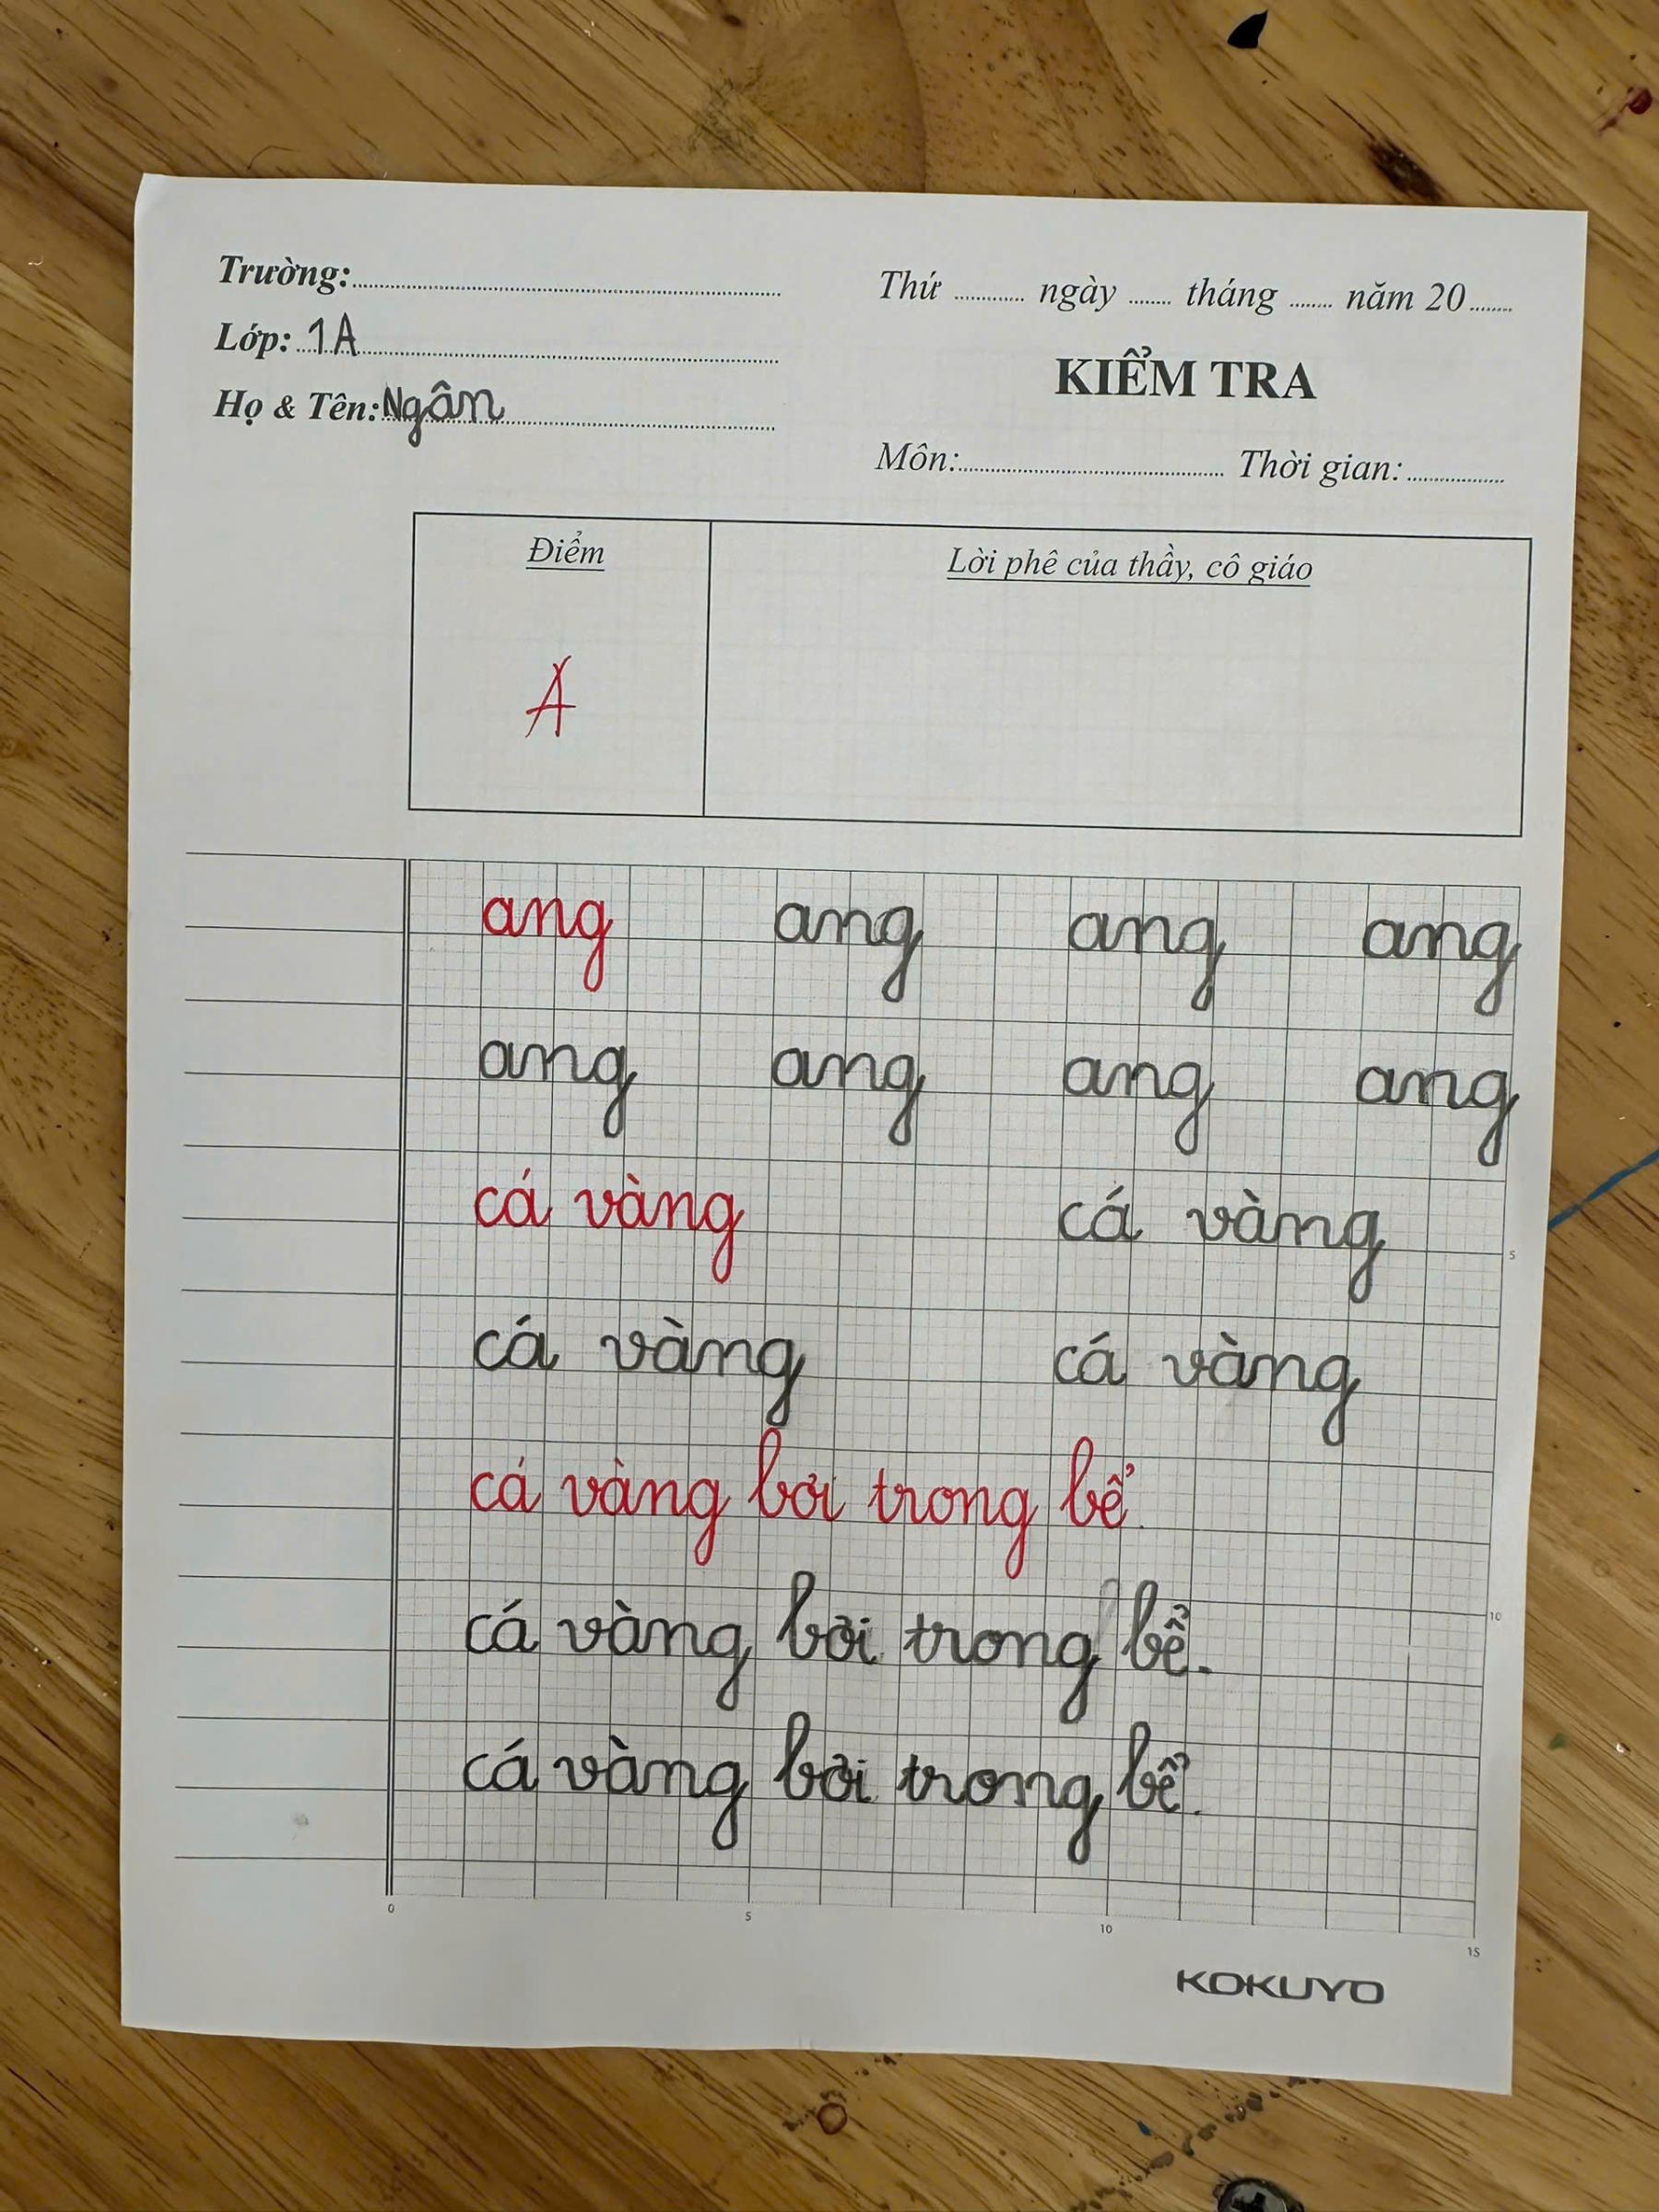 Trường:
Thứ ngày tháng năm 20
Lớp: 1A
KIỂM TRA
Họ & Tên: Ngân
Môn: Thời gian:
Điểm
Lời phê của thầy, cô giáo
A
ang ang ang ang
ang ang ang ang
cá vàng cá vàng
cá vàng cá vàng
cá vàng bơi trong bể.
cá vàng bơi trong bể.
cá vàng bơi trong bể.
5
10
0 5 10 15
KOKUYO